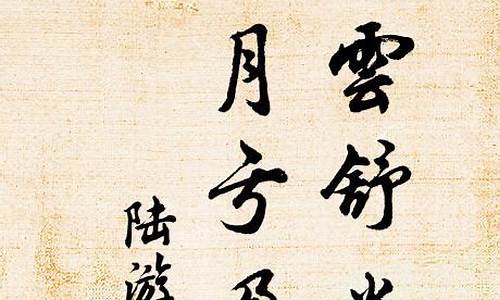 雲舒
月亏
陆游